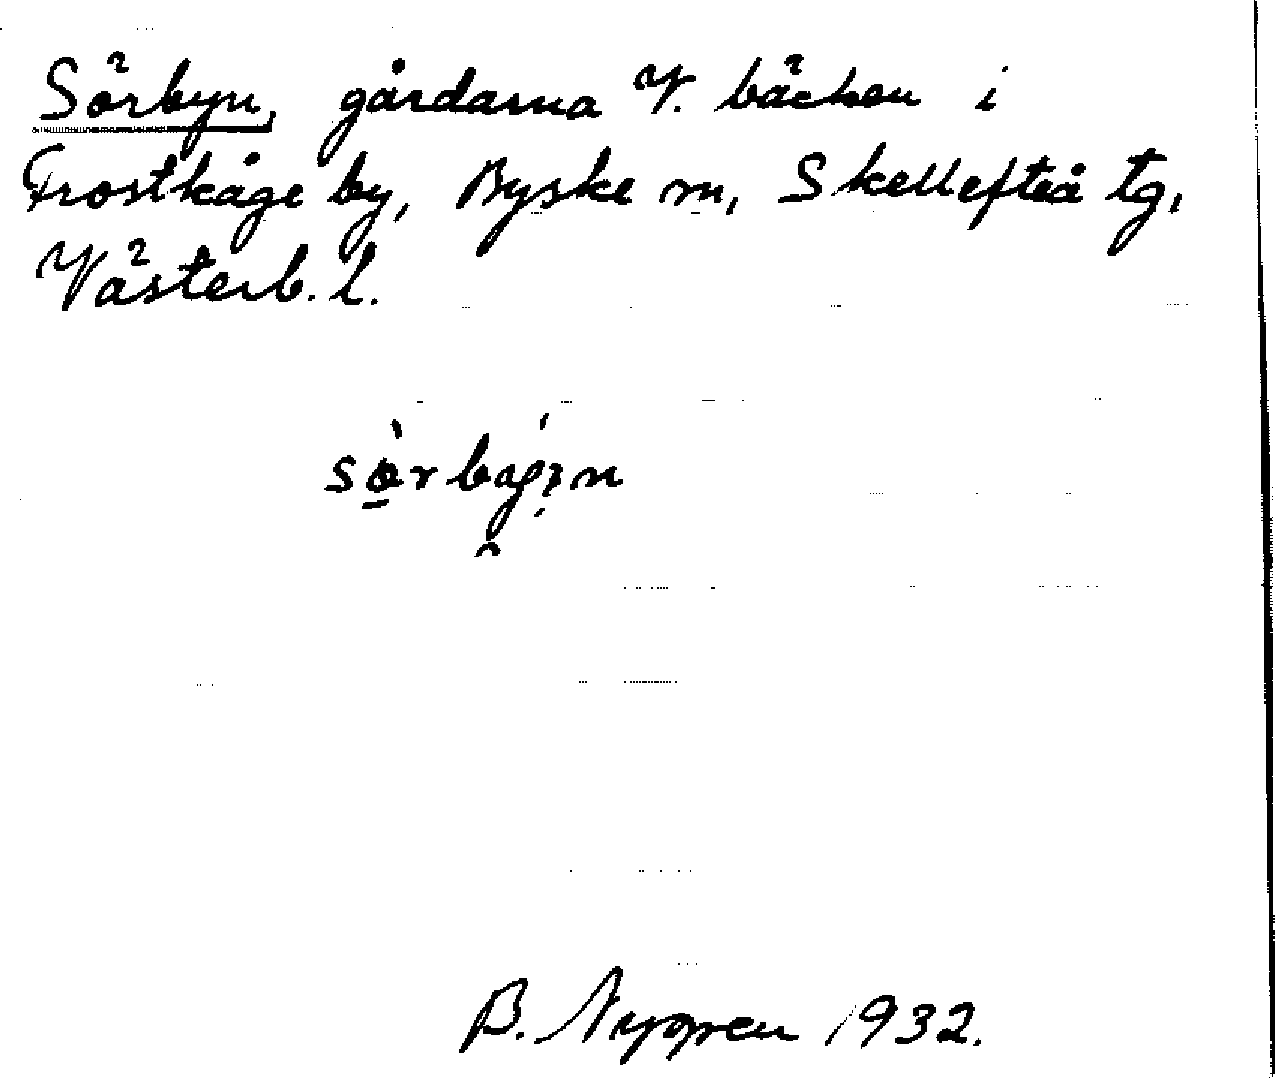 Sörbyn, gårdarna V. bäcken i
Frostkåge by, Byske sn, Skellefteå tg,
Västerb. l.
B. Nygren 1932.